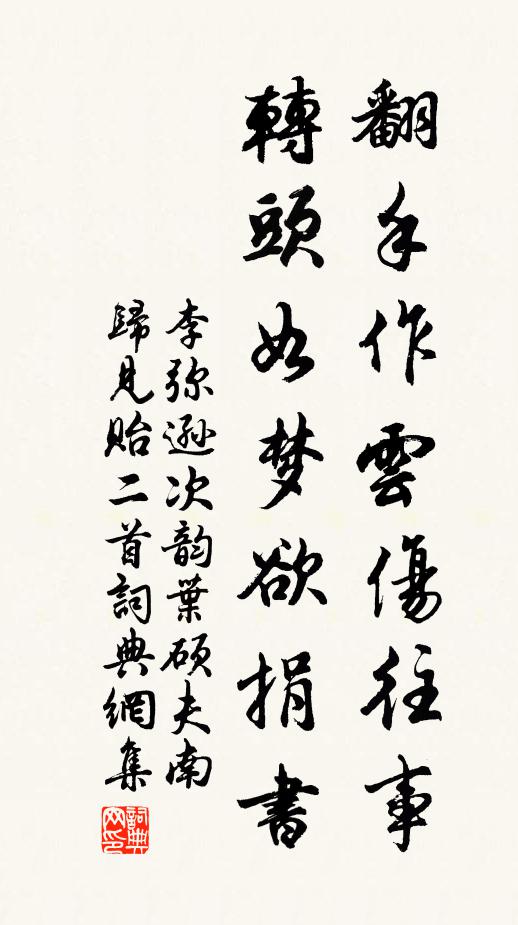 翻手作雲傷往事
轉頭如梦欲捐書
李弥遜次韵葉硕夫南
歸見貽二首詞典網集
詞典网印